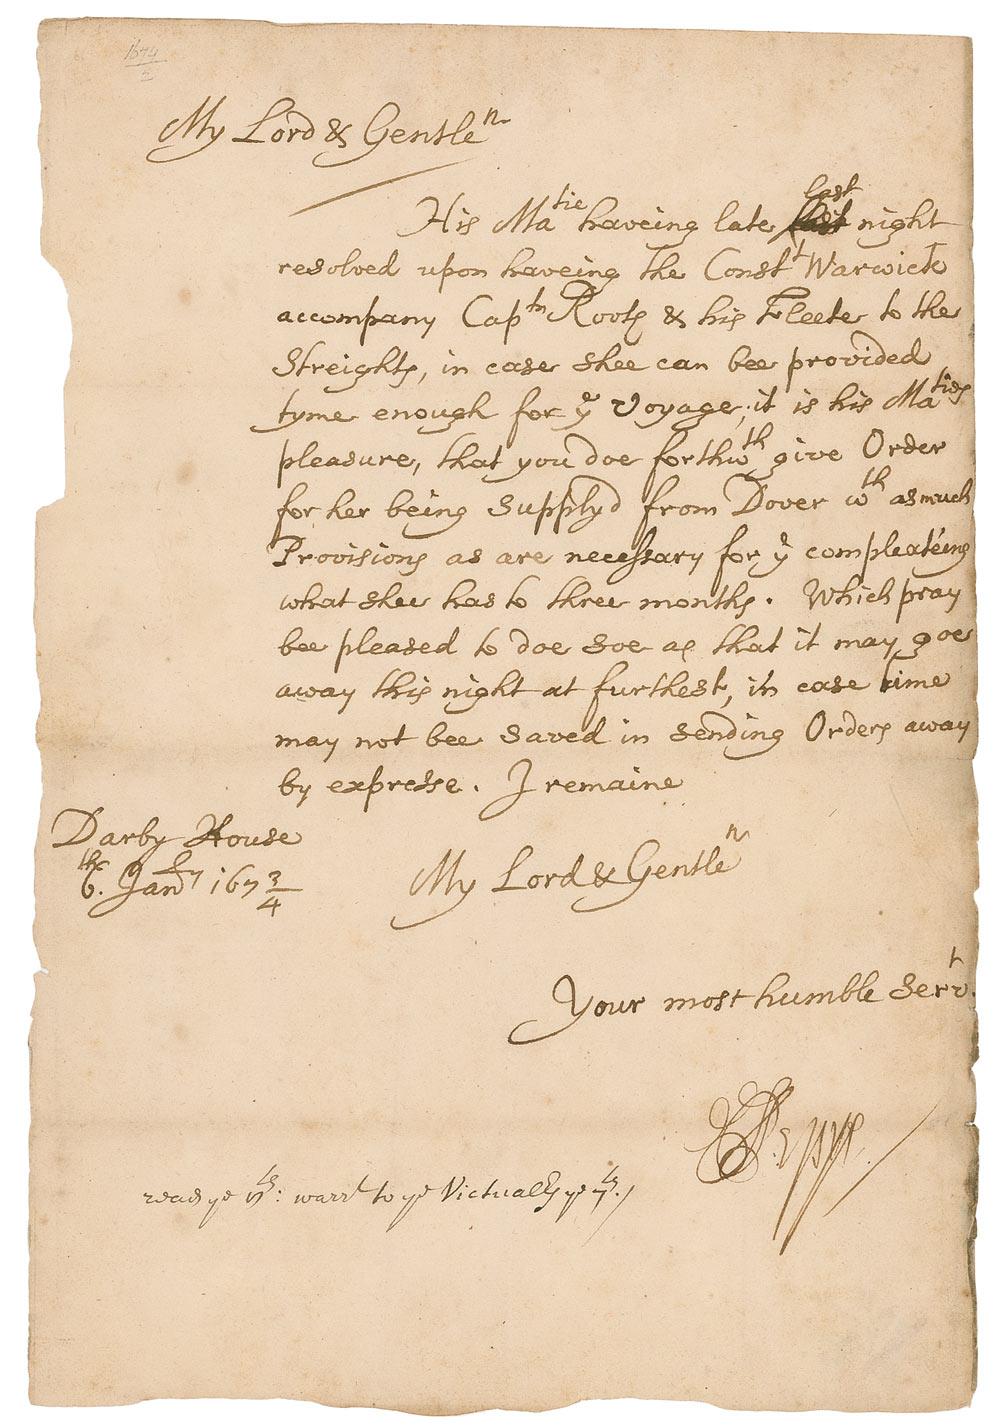 1674
5
My Lord & Gentle^n
His Ma^tie haveing late last night
resolved upon haveing the Const^t Warwick
accompany Cap^tn Rooth & his Fleete to the
Streights, in case shee can bee provided
tyme enough for y^e Voyage; it is his Ma^ties
pleasure, that you doe forthw^th give Order
for her being Supply'd from Dover w^th as much
Provisions as are necessary for y^e compleateing
what shee has to three months. Which pray
bee pleased to doe soe as that it may goe
away this night at furthest, in case time
may not bee saved in sending Orders away
by expresse. I remaine
Darby House
6.^th Jan^ry 167 3/4
My Lord & Gentle^n
Your most humble Serv^t.
SPepys.
read ye 6^th: warr^t to ye Victuall^rs ye 7^th./